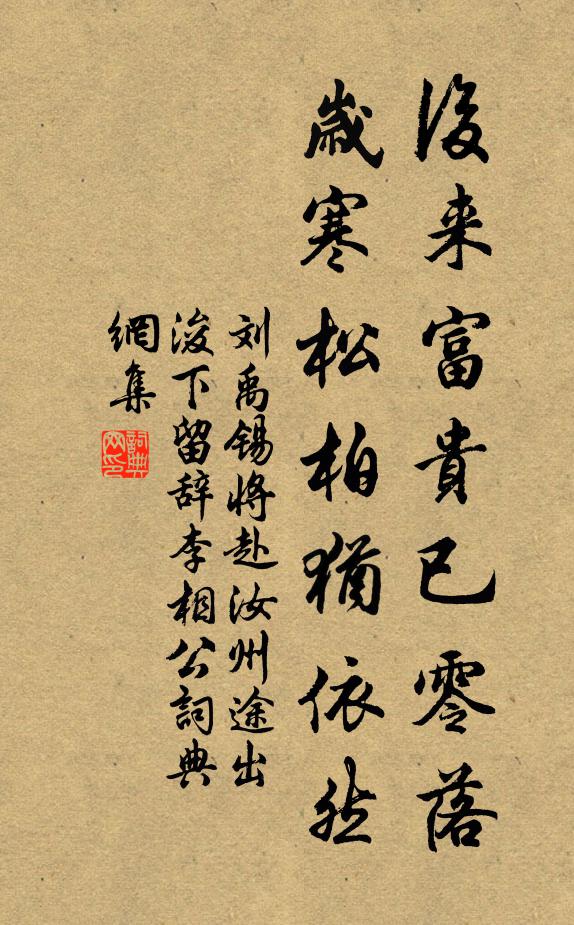 後来富貴已零落
歳寒松柏猶依然
刘禹锡將赴汝州途出
浚下留辞李相公詞典
網集
詞典
网印